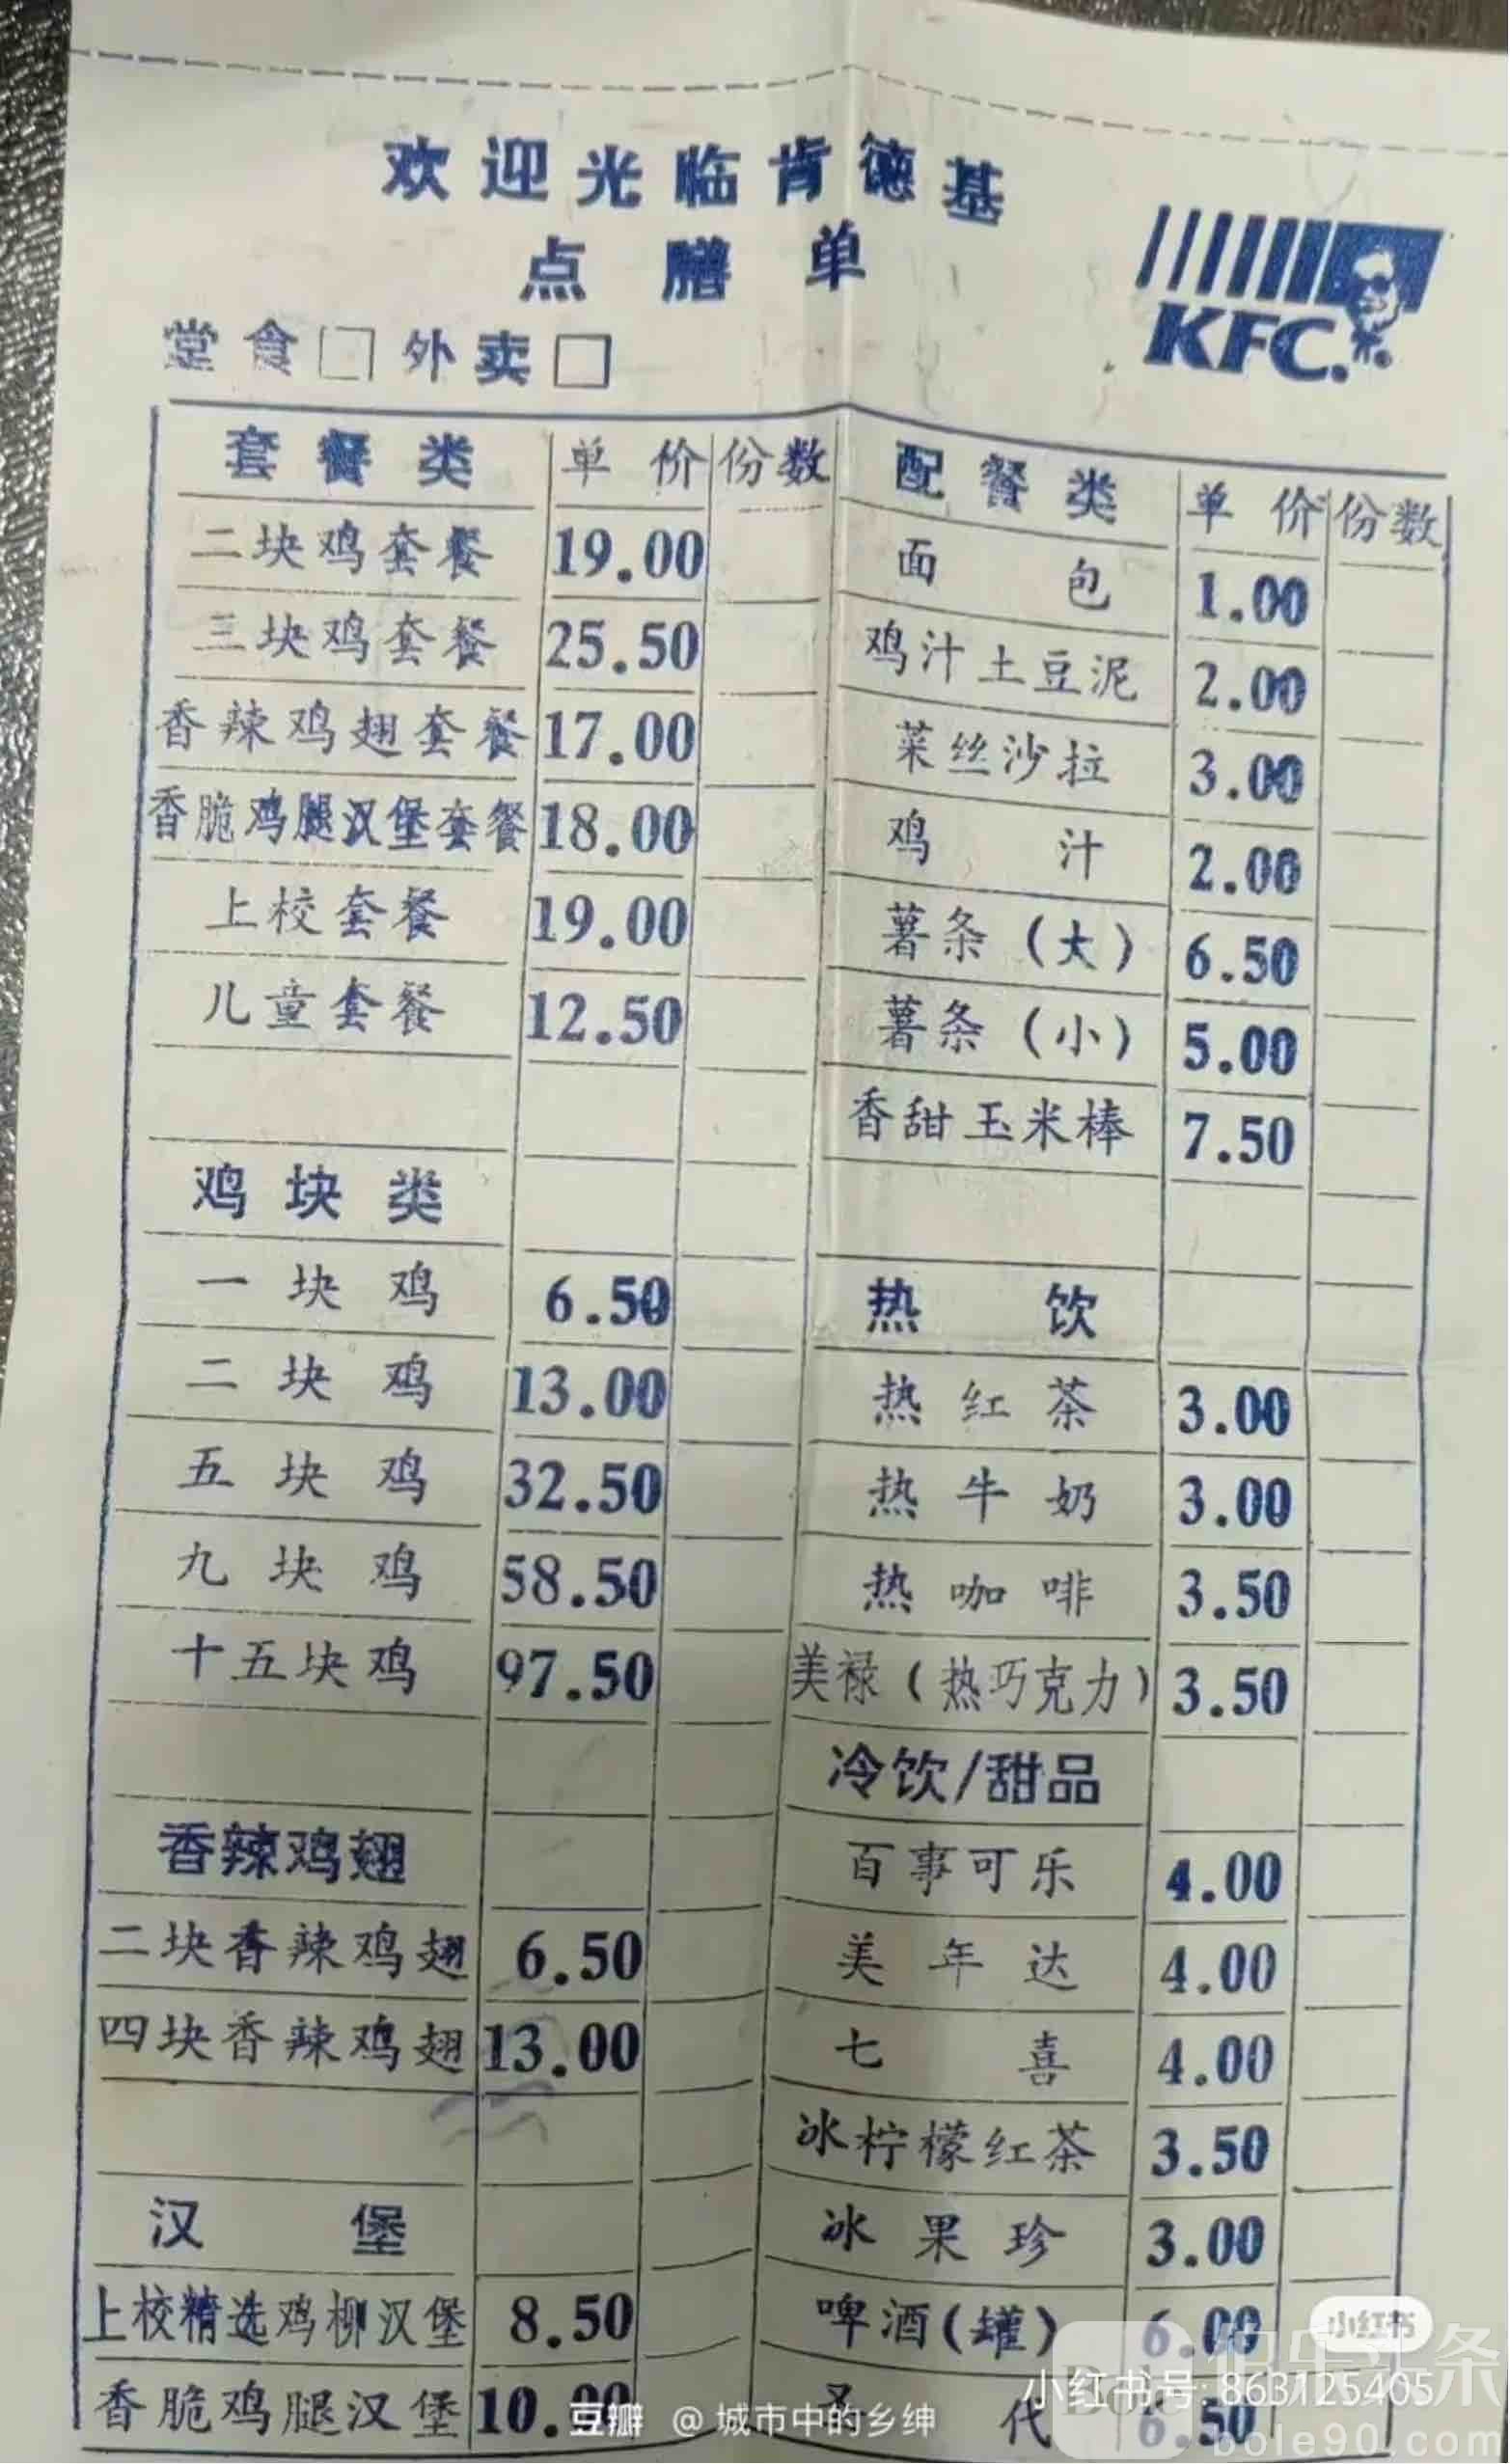 欢迎光临肯德基
点膳单
KFC.
堂食□ 外卖□
套餐类 单价 份数
二块鸡套餐 19.00
三块鸡套餐 25.50
香辣鸡翅套餐 17.00
香脆鸡腿汉堡套餐 18.00
上校套餐 19.00
儿童套餐 12.50
鸡块类
一块鸡 6.50
二块鸡 13.00
五块鸡 32.50
九块鸡 58.50
十五块鸡 97.50
香辣鸡翅
二块香辣鸡翅 6.50
四块香辣鸡翅 13.00
汉堡
上校精选鸡柳汉堡 8.50
香脆鸡腿汉堡 10.00
配餐类 单价 份数
面包 1.00
鸡汁土豆泥 2.00
菜丝沙拉 3.00
鸡汁 2.00
薯条(大) 6.50
薯条(小) 5.00
香甜玉米棒 7.50
热饮
热红茶 3.00
热牛奶 3.00
热咖啡 3.50
美禄(热巧克力) 3.50
冷饮/甜品
百事可乐 4.00
美年达 4.00
七喜 4.00
冰柠檬红茶 3.50
冰果珍 3.00
啤酒(罐) 6.00
代 6.50
小红书
小红书号: 863125405
豆瓣 @城市中的乡绅
bole90.com